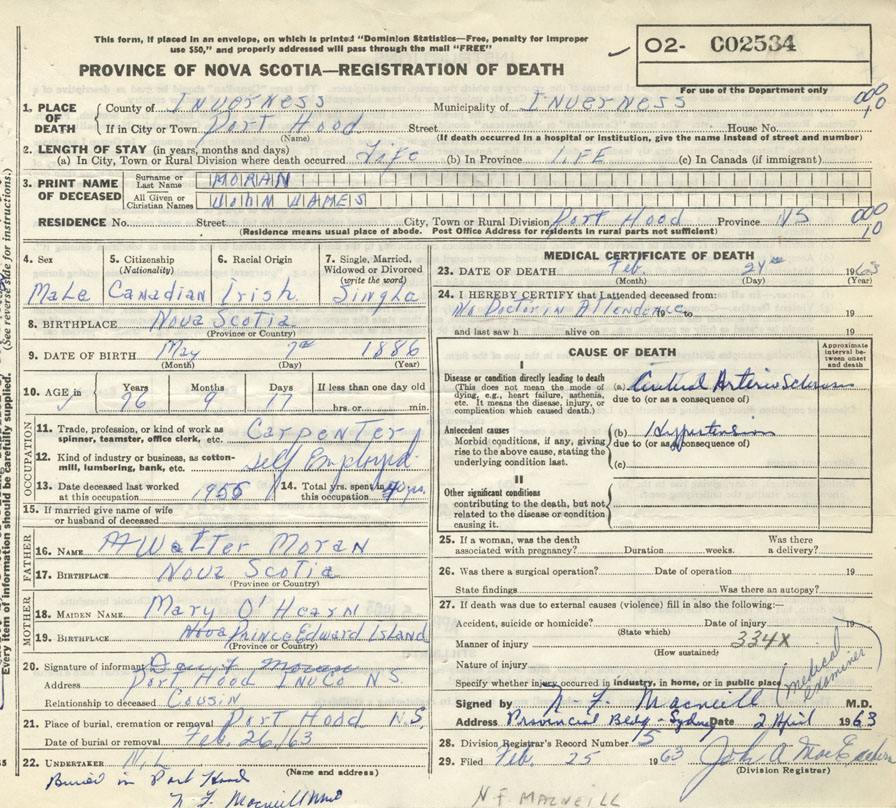 This form, if placed in an envelope, on which is printed "Dominion Statistics—Free, penalty for improper
use $50," and properly addressed will pass through the mail "FREE"
O2- C02534
PROVINCE OF NOVA SCOTIA—REGISTRATION OF DEATH
For use of the Department only
1. PLACE OF DEATH County of Inverness Municipality of Inverness
If in City or Town Port Hood Street House No.
(Name) (If death occurred in a hospital or institution, give the name instead of street and number)
2. LENGTH OF STAY (in years, months and days)
(a) In City, Town or Rural Division where death occurred Life (b) In Province LIFE (c) In Canada (if immigrant)
3. PRINT NAME OF DECEASED Surname or Last Name MORAN
All Given or Christian Names JOHN JAMES
RESIDENCE No. Street City, Town or Rural Division Port Hood Province NS
(Residence means usual place of abode. Post Office Address for residents in rural parts not sufficient)
000
10
4. Sex 5. Citizenship (Nationality) 6. Racial Origin 7. Single, Married, Widowed or Divorced (write the word)
Male Canadian Irish Single
8. BIRTHPLACE Nova Scotia
(Province or Country)
9. DATE OF BIRTH May 7th 1886
(Month) (Day) (Year)
10. AGE in Years Months Days If less than one day old
76 9 17 hrs. or min.
OCCUPATION
11. Trade, profession, or kind of work as spinner, teamster, office clerk, etc. Carpenter
12. Kind of industry or business, as cotton-mill, lumbering, bank, etc. Self Employed
13. Date deceased last worked at this occupation 1956 14. Total yrs. spent in this occupation yrs.
15. If married give name of wife or husband of deceased
FATHER
16. NAME Walter Moran
17. BIRTHPLACE Nova Scotia
(Province or Country)
MOTHER
18. MAIDEN NAME Mary O'Hearn
19. BIRTHPLACE Prince Edward Island
(Province or Country)
20. Signature of informant Moran
Address Port Hood Inv Co N S
Relationship to deceased Cousin
21. Place of burial, cremation or removal Port Hood N.S.
Date of burial or removal Feb. 26/63
22. UNDERTAKER
(Name and address)
Buried in Port Hood
MEDICAL CERTIFICATE OF DEATH
23. DATE OF DEATH Feb. 24th 1963
(Month) (Day) (Year)
24. I HEREBY CERTIFY that I attended deceased from:
No Doctor in Attendence 19 to 19
and last saw h alive on 19
CAUSE OF DEATH
Approximate interval between onset and death
I
Disease or condition directly leading to death
(This does not mean the mode of dying, e.g., heart failure, asthenia, etc. It means the disease, injury, or complication which caused death.)
(a) Arterio Sclerosis
due to (or as a consequence of)
Antecedent causes
Morbid conditions, if any, giving rise to the above cause, stating the underlying condition last.
(b) Hypertension
due to (or as a consequence of)
(c)
II
Other significant conditions
contributing to the death, but not related to the disease or condition causing it.
25. If a woman, was the death associated with pregnancy? Duration weeks. Was there a delivery?
26. Was there a surgical operation? Date of operation 19
State findings Was there an autopsy?
27. If death was due to external causes (violence) fill in also the following:—
Accident, suicide or homicide? Date of injury 19
(State which)
Manner of injury 334X
(How sustained)
Nature of injury
Specify whether injury occurred in industry, in home, or in public place
(medical examiner)
Signed by N. F. Macneill M.D.
Address Provincial Bldg - Sydney Date 2 April 1963
28. Division Registrar's Record Number 5
29. Filed Feb. 25 1963 John A
(Division Registrar)
N.F. MACNEILL
(See reverse side for instructions.)
Every item of information should be carefully supplied.